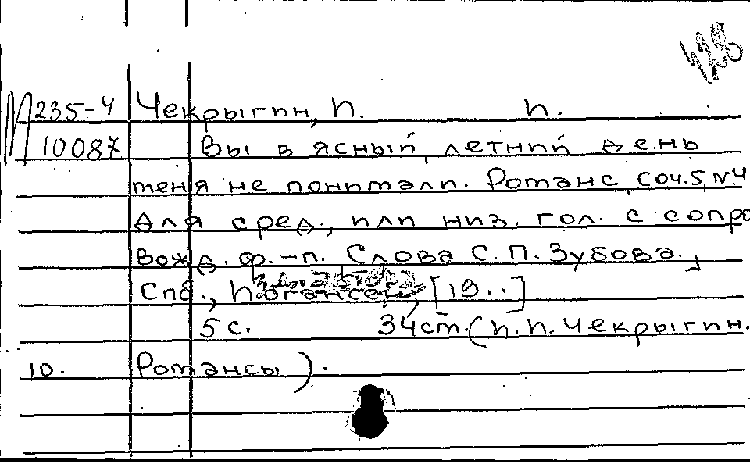 М 235-4 Чекрыгин, И. И.
10087 Вы в ясный, летний день
меня не понимали. Романс, Соч. 5, №4
Для сред., или низ. гол. с сопро
вожд. ф.-п. Слова С. П. Зубова.,
Спб., [19..]
5 с. 34 см. (И. И. Чекрыгин.
10. Романсы).